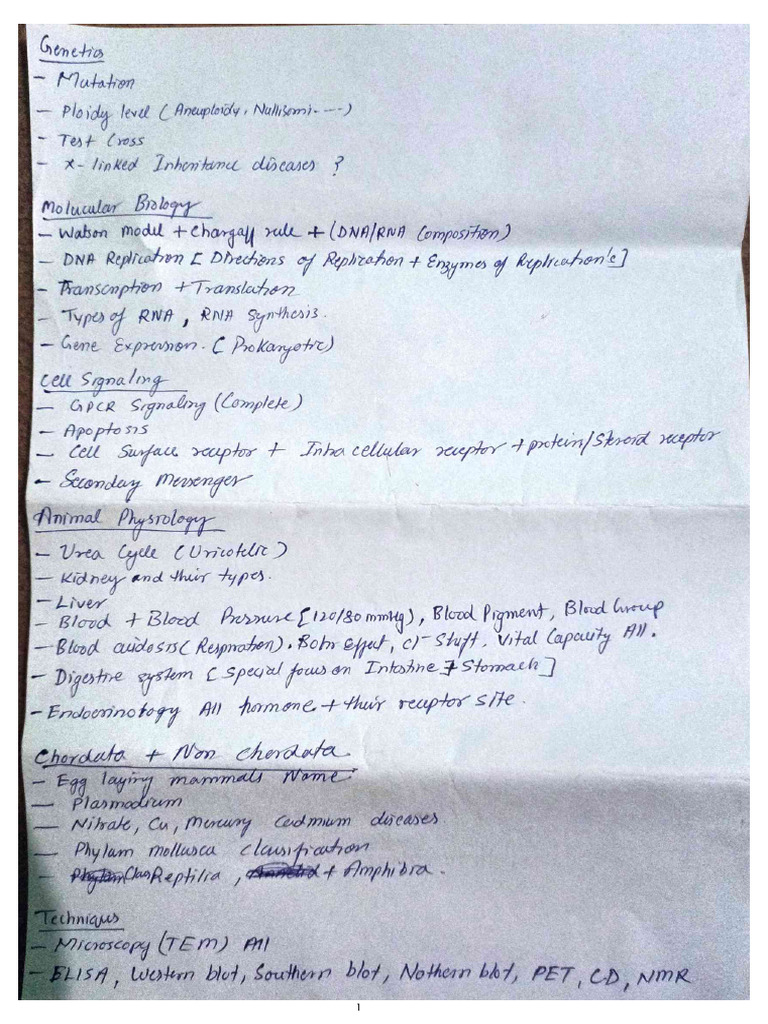 Genetics
- Mutation
- Ploidy level (Aneuploidy, Nullisomi----)
- Test Cross
- X-linked Inheritance diseases ?
Molucular Biology
- Watson Model + Chargaff rule + (DNA/RNA Composition)
- DNA Replication [Directions of Replication + Enzymes of Replication's]
- Transcription + Translation
- Types of RNA, RNA Synthesis.
- Gene Expression. (Prokaryotic)
Cell Signaling
- GPCR Signaling (Complete)
- Apoptosis
- Cell Surface receptor + Intracellular receptor + protein/Steroid receptor
- Seconday Messenger
Animal Physiology
- Urea Cycle (Uricotelic)
- Kidney and their types.
- Liver
- Blood + Blood Pressure [120/80 mmHg), Blood Pigment, Blood Group
- Blood acidosis (Respiration). Bohr Effect, Cl- Shift, Vital Capacity All.
- Digestive system [Special focus on Intestine + Stomach]
- Endocrinology All hormone + their receptor site.
Chordata + Non Chordata
- Egg laying mammals Name
- Plasmodium
- Nitrate, Cu, Mercury Cadmium diseases
- Phylam mollusca classification
- Class Reptilia, + Amphibia.
Techniques
- Microscopy (TEM) All
- ELISA, Western blot, Southern blot, Nothern blot, PET, CD, NMR
1